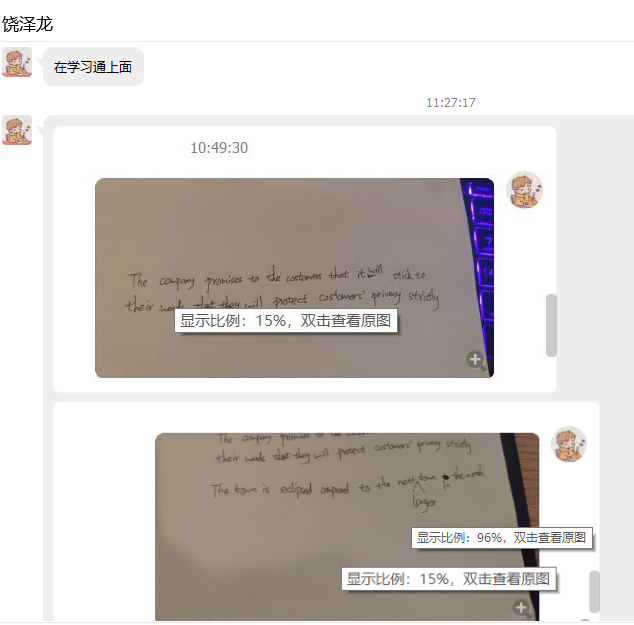 饶泽龙
在学习通上面
11:27:17
10:49:30
The company promises to the customers that it will stick to
their words that they will protect customers' privacy strictly
显示比例：15%，双击查看原图
The company promises to the customers
their words that they will protect customers' privacy strictly
The town is eclipsed compared to the next town to the north.
larger in
显示比例：96%，双击查看原图
显示比例：15%，双击查看原图